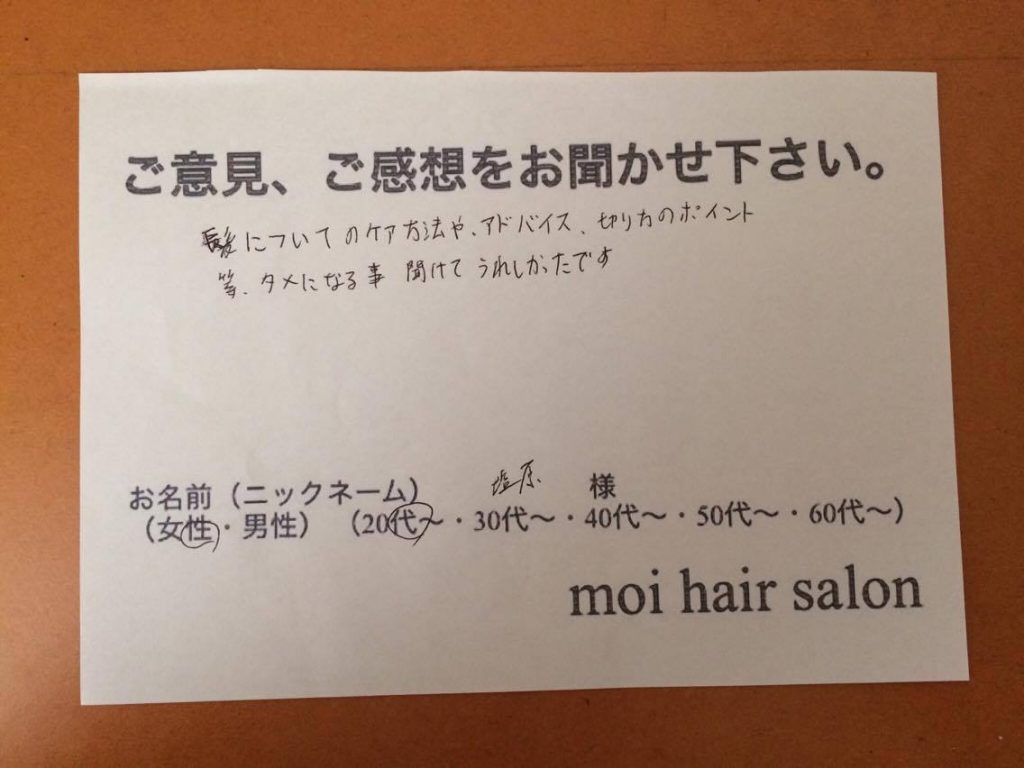 ご意見、ご感想をお聞かせ下さい。
髪についてのケア方法や、アドバイス、切り方のポイント
等、タメになる事 聞けてうれしかったです
お名前（ニックネーム） 塩原 様
（女性・男性）（20代～・30代～・40代～・50代～・60代～）
moi hair salon